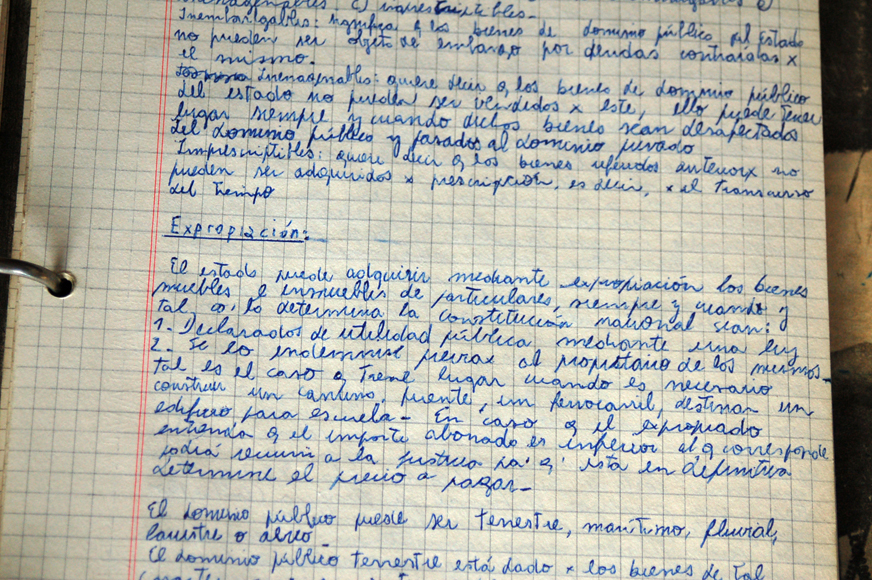 c) imprescriptibles.-
Inembargables: significa q los bienes de dominio público del Estado
no pueden ser objeto de embargo por deudas contraídas x
el mismo.
Inenagenables: quiere decir q los bienes de dominio público
del estado no pueden ser vendidos x este, ello puede tener
lugar siempre y cuando dichos bienes sean desafectados
del dominio público y pasados al dominio privado
Imprescriptibles: quiere decir q los bienes referidos anteriorx no
pueden ser adquiridos x prescripción, es decir, x el transcurso
del tiempo
Expropiación:
El estado puede adquirir mediante expropiación los bienes
muebles e inmuebles de particulares, siempre y cuando y
tal, lo determina la constitución nacional sean:
1- Declarados de utilidad pública, mediante una ley
2- Se lo indemnice previax al propietario de los mismos-
Tal es el caso q tiene lugar cuando es necesario
construir un camino, puente, un ferrocarril, destinar un
edificio para escuela- En caso q el expropiado
entienda q el importe abonado es inferior al q corresponde
podrá recurrir a la justicia pa' q' ésta en definitiva
determine el precio a pagar-
El dominio público puede ser terrestre, marítimo, fluvial,
lacustre o aéreo-
El dominio público terrestre está dado x los bienes de tal